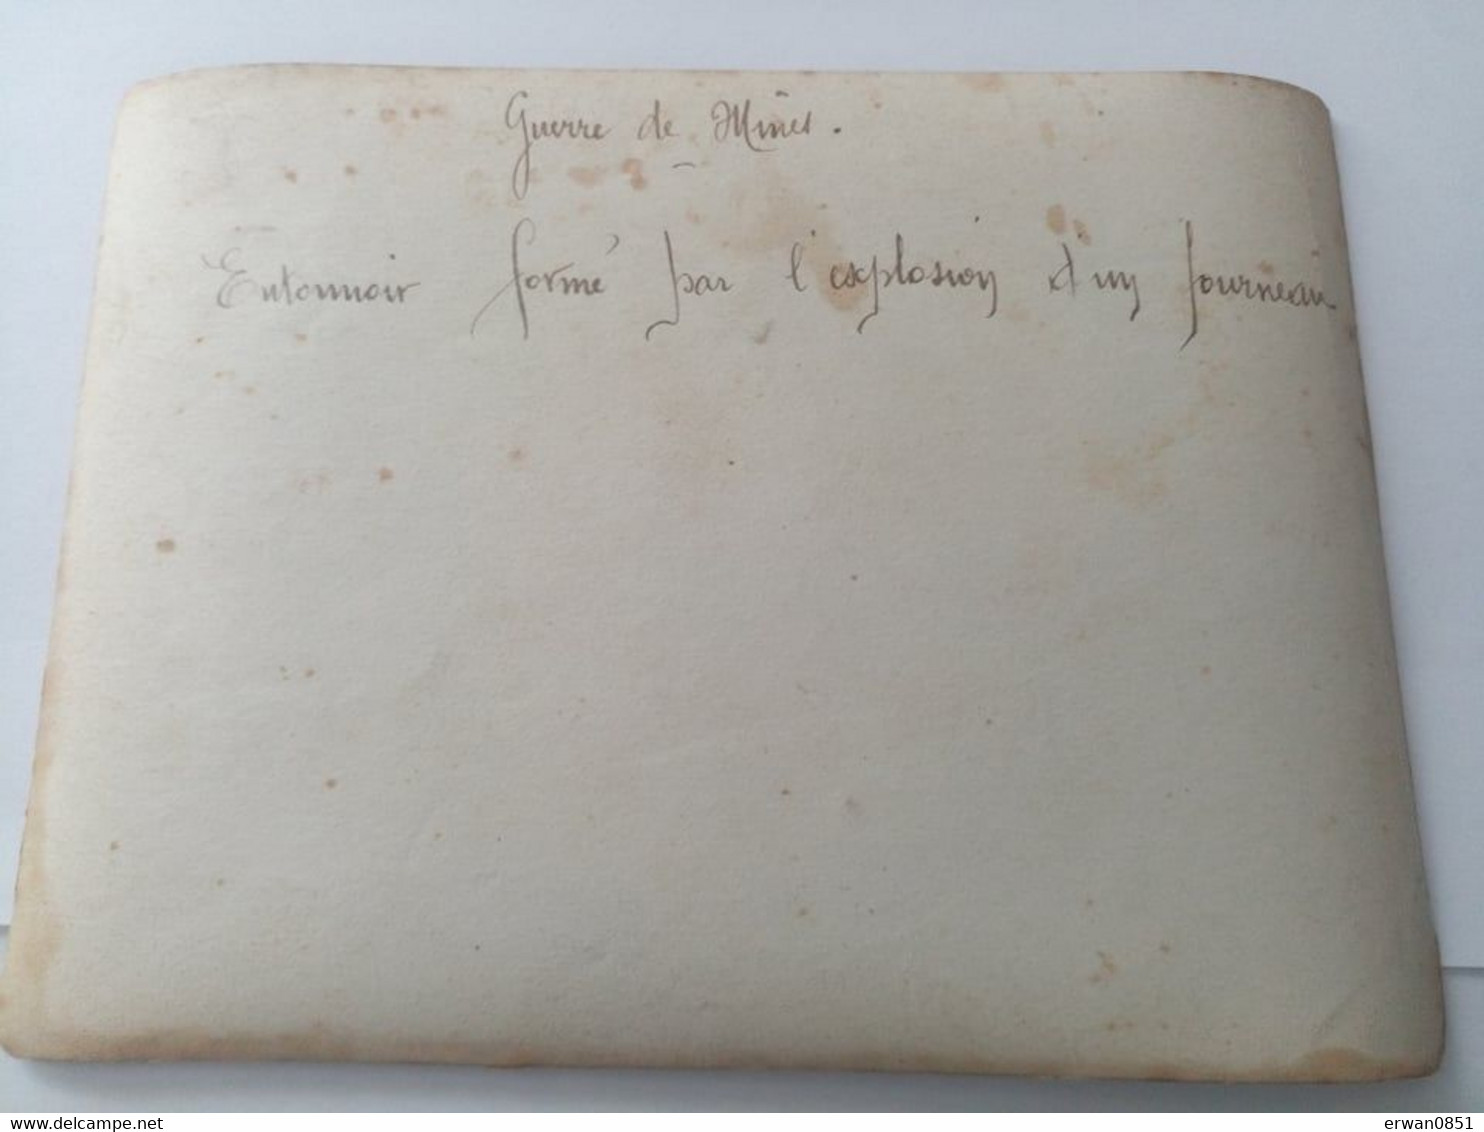 Guerre de Mines.
Entonnoir formé par l'explosion d'un fourneau
delcampe.net
erwan0851